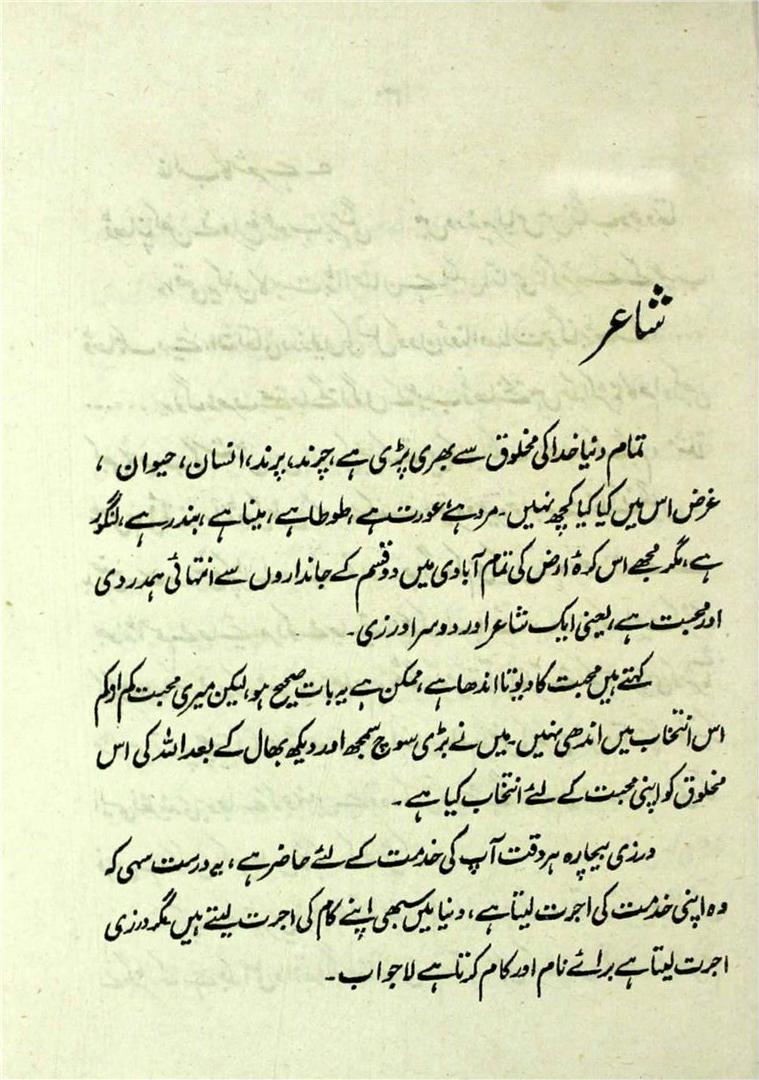 شاعر
تمام دنیا خدا کی مخلوق سے بھری پڑی ہے، چرند، پرند، انسان، حیوان،
غرض اس میں کیا کیا کچھ نہیں۔ مرد ہے عورت ہے، طوطا ہے، مینا ہے، بندر ہے، لنگور
ہے، مگر مجھے اس کرۂ ارض کی تمام آبادی میں دو قسم کے جانداروں سے انتہائی ہمدردی
اور محبت ہے، یعنی ایک شاعر اور دوسرا درزی۔
کہتے ہیں محبت کا دیوتا اندھا ہے، ممکن ہے یہ بات صحیح ہو، لیکن میری محبت کم از کم
اس انتخاب میں اندھی نہیں۔ میں نے بڑی سوچ سمجھ اور دیکھ بھال کے بعد اللہ کی اس
مخلوق کو اپنی محبت کے لئے انتخاب کیا ہے۔
درزی بیچارہ ہر وقت آپ کی خدمت کے لئے حاضر ہے، یہ درست سہی کہ
وہ اپنی خدمت کی اجرت لیتا ہے، دنیا میں سبھی اپنے کام کی اجرت لیتے ہیں مگر درزی
اجرت لیتا ہے برائے نام اور کام کرتا ہے لاجواب۔